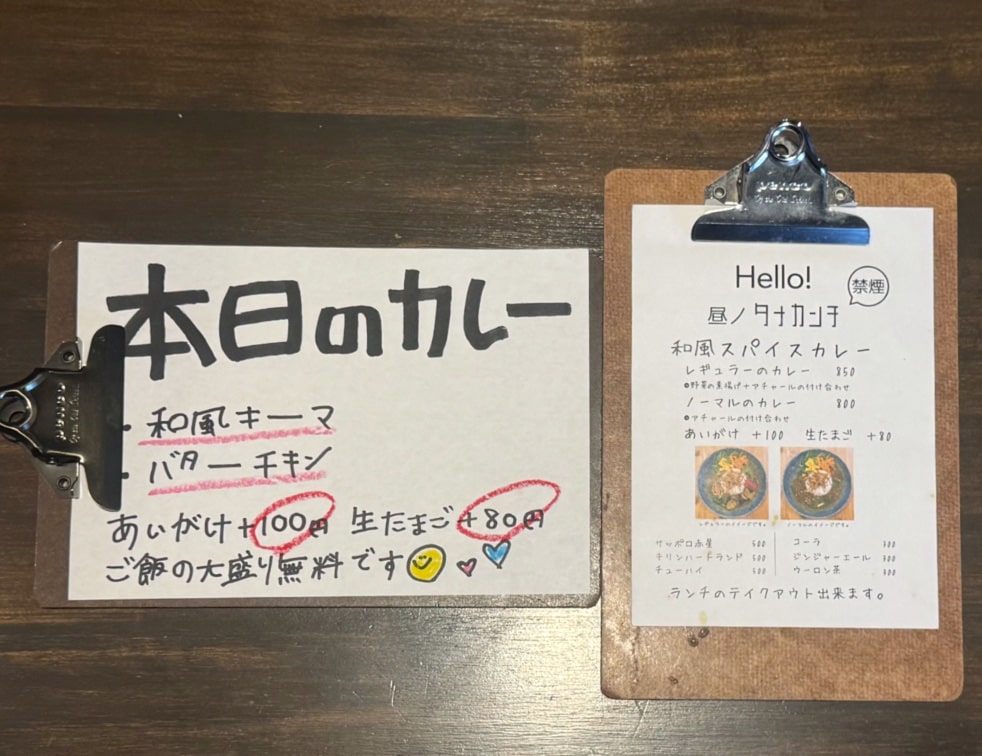 本日のカレー
・和風キーマ
・バターチキン
あいがけ+100円 生たまご+80円
ご飯の大盛り無料です
penco
Hello!
禁煙
昼ノタナカンチ
和風スパイスカレー
レギュラーのカレー 850
●野菜の素揚げ+アチャールの付け合わせ
ノーマルのカレー 800
●アチャールの付け合わせ
あいがけ +100 生たまご +80
レギュラーのイメージです。
ノーマルのイメージです。
サッポロ赤星 500
キリンハートランド 500
チューハイ 500
コーラ 300
ジンジャーエール 300
ウーロン茶 300
ランチのテイクアウト出来ます。